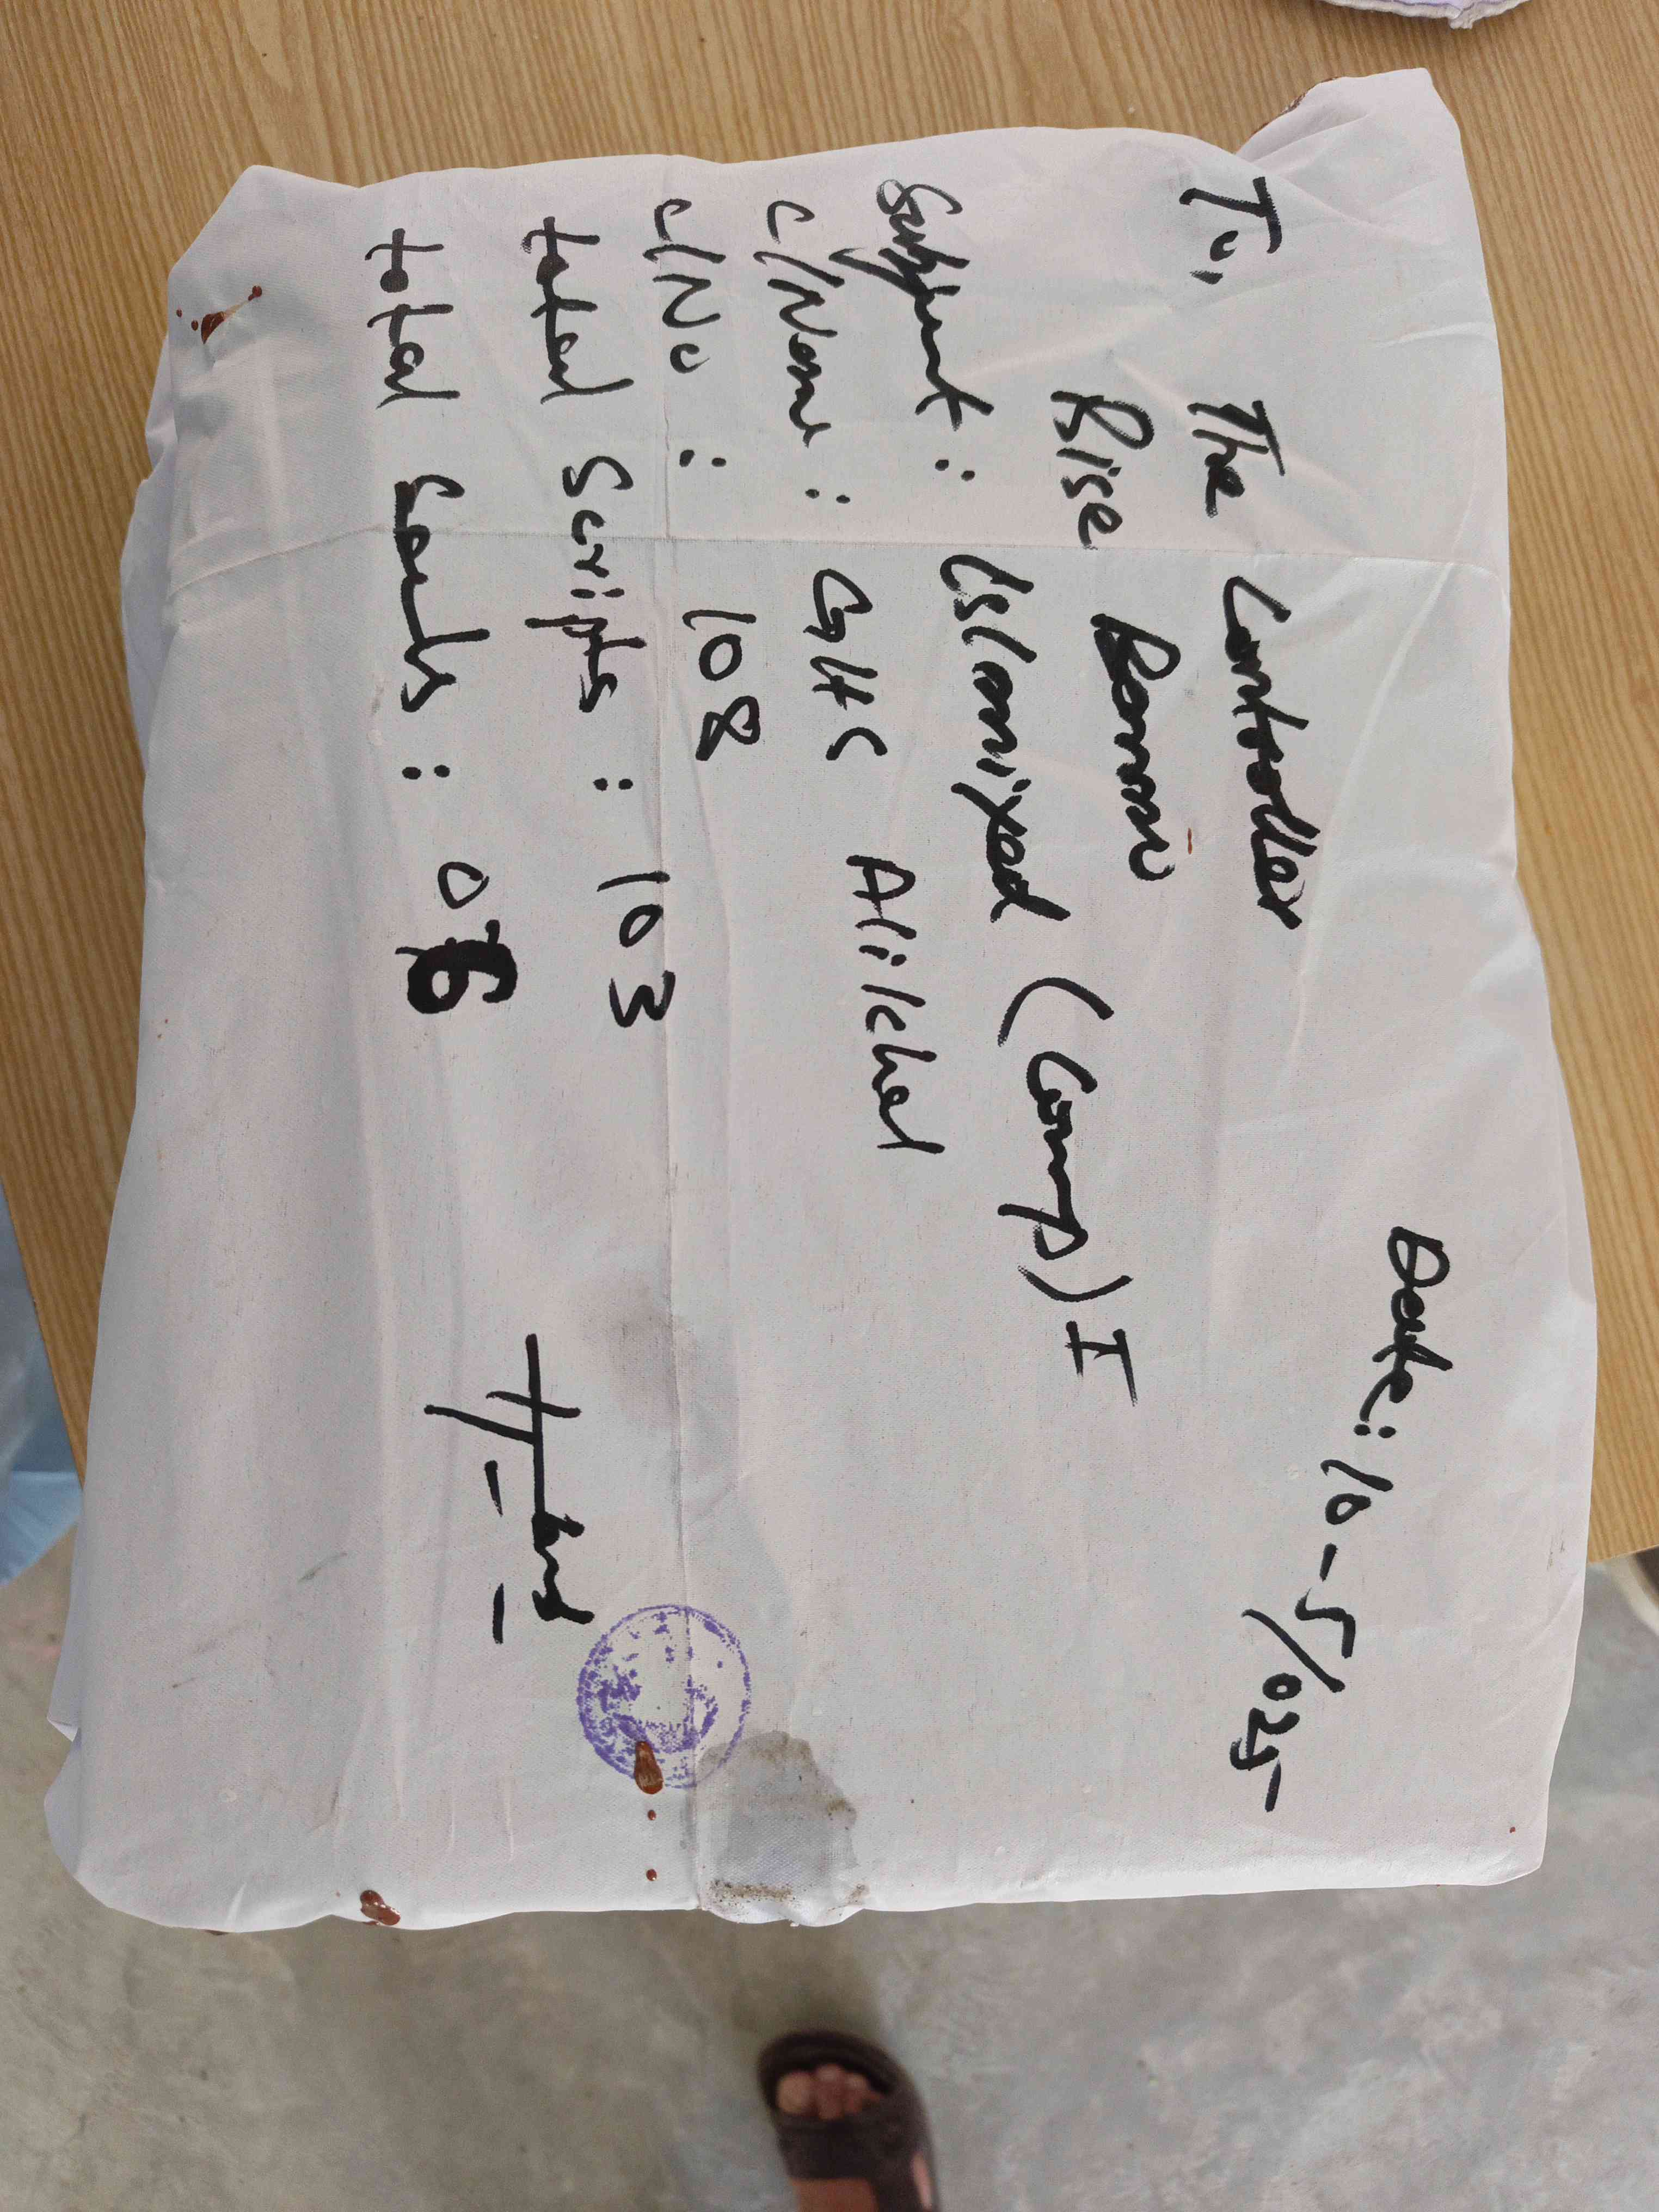 Date: 10-5/025
To, The Controller
Bise Bannu
Subject: Islamiyat (Comp) I
C/Name: GHS Alikhel
C/No: 108
total Scripts: 103
total Seals: 06